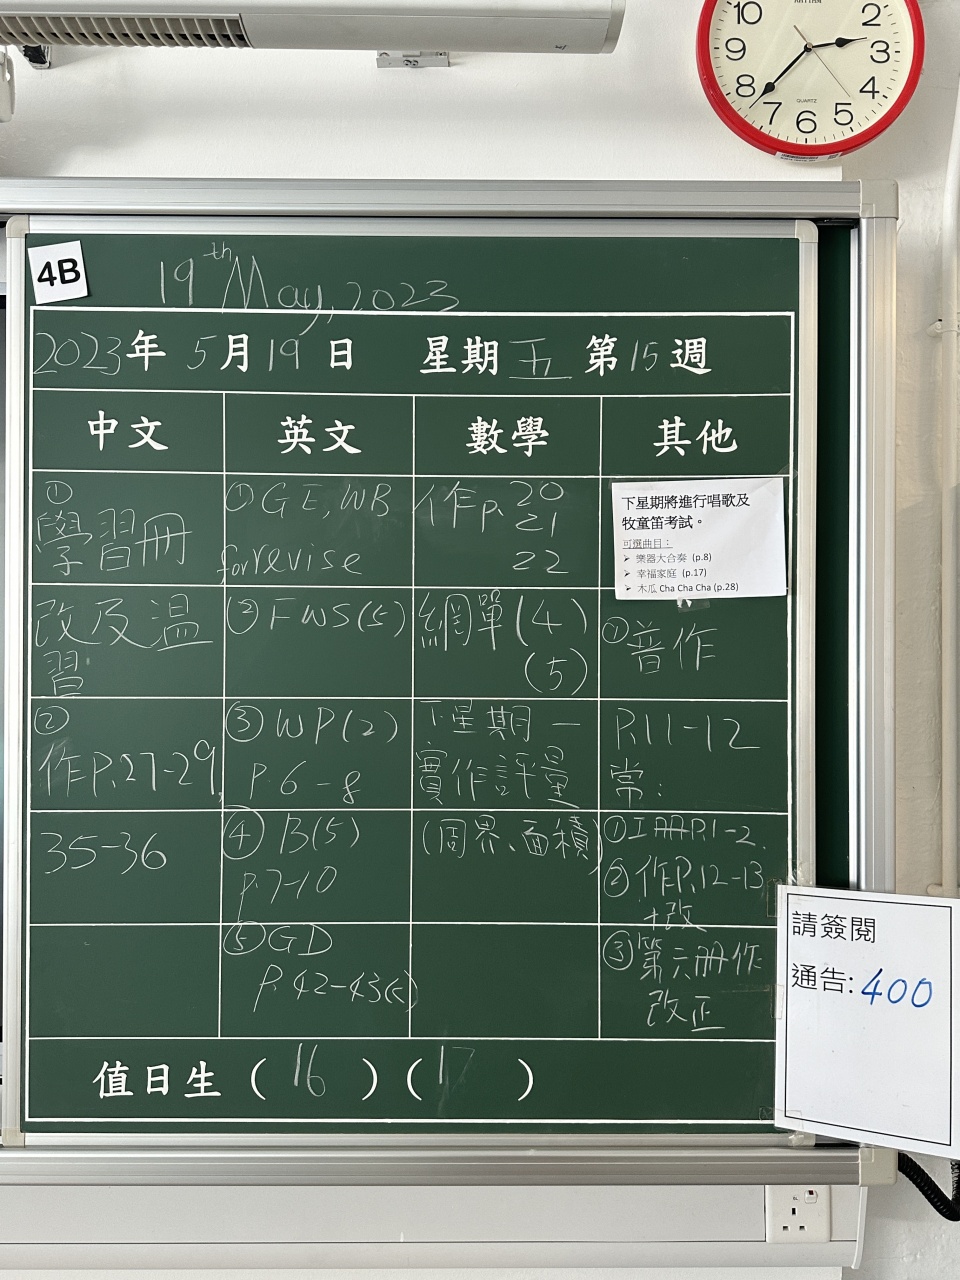 RHYTHM
10
2
9
3
8
4
7
6
5
QUARTZ
4B
19th May, 2023
2023年 5月19日 星期五 第15週
中文
英文
數學
其他
①
學習冊
改及溫
習
②
作P.27-29,
35-36
① GE, WB
for revise
② FWS(5)
③ WP(2)
P.6-8
④ B(5)
P.7-10
⑤ GD
P.42-43(c)
作P. 20
21
22
網單(4)
(5)
下星期一
實作評量
(周界、面積)
下星期將進行唱歌及
牧童笛考試。
可選曲目：
➢ 樂器大合奏 (p.8)
➢ 幸福家庭 (p.17)
➢ 木瓜 Cha Cha Cha (p.28)
① 音作
P.11-12
常:
① 工冊P.1-2.
② 作P.12-13
+改
③ 第六冊作
改正
請簽閱
通告: 400
值日生 ( 16 ) ( 17 )